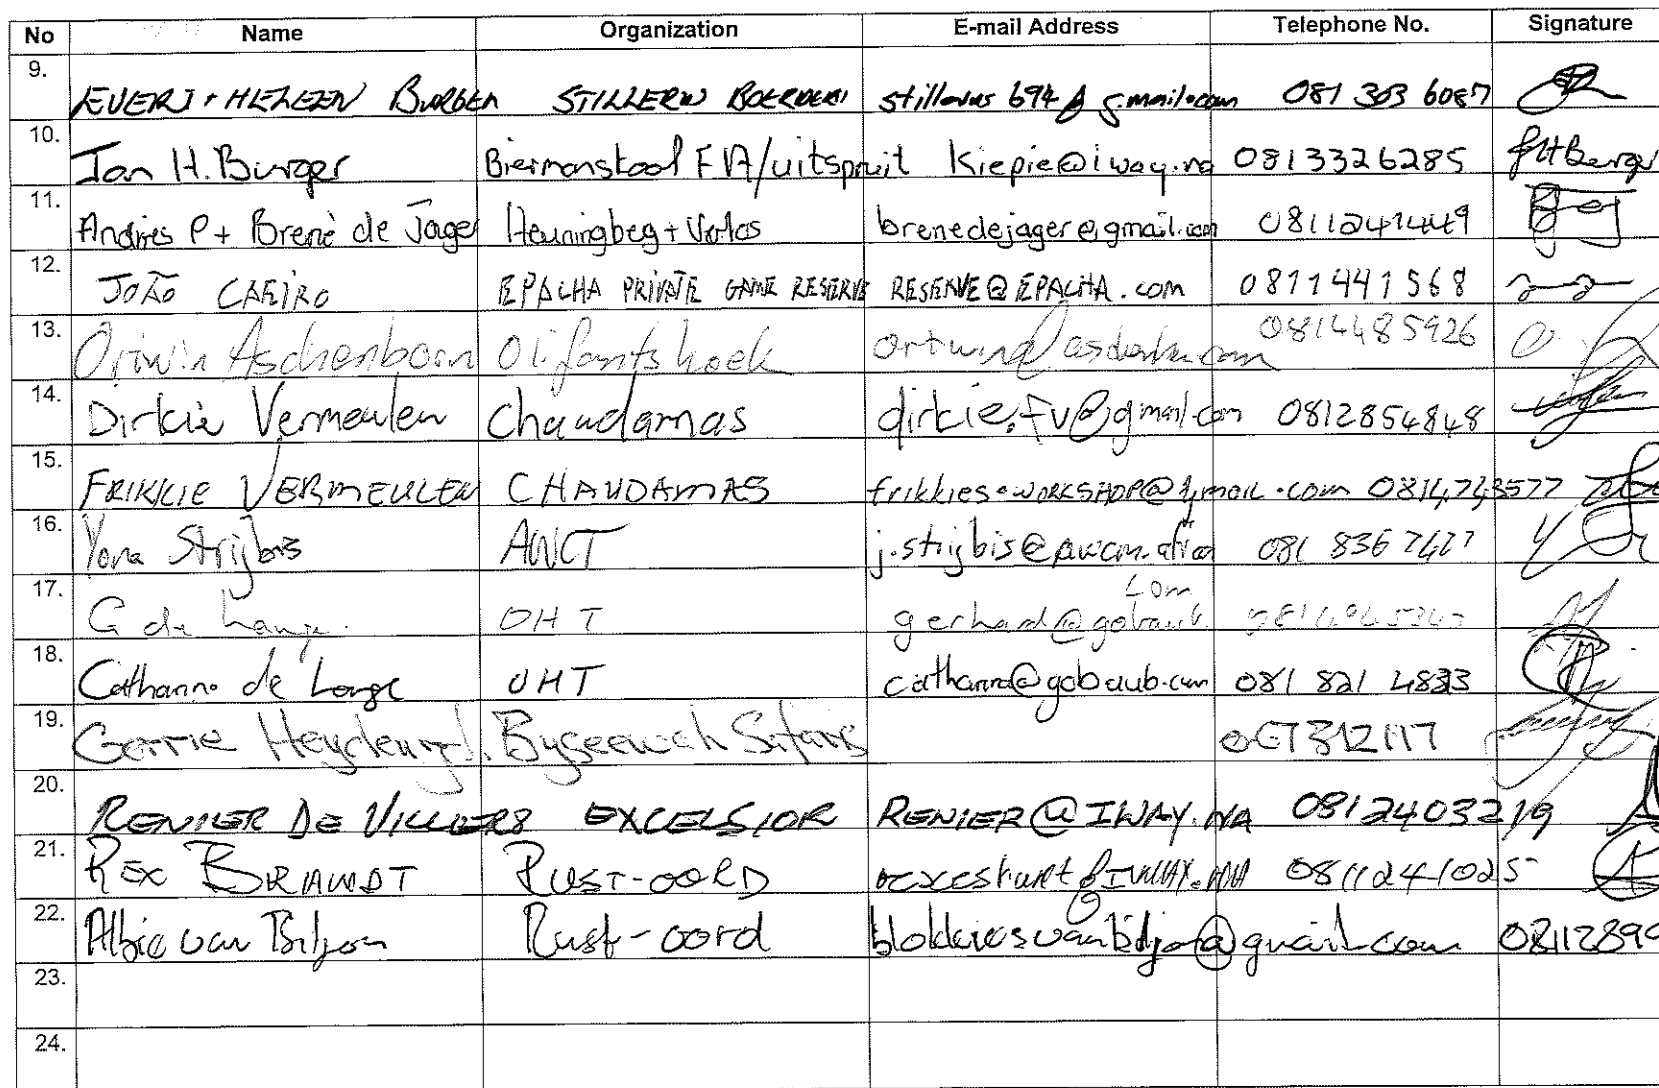 No Name Organization E-mail Address Telephone No. Signature
9. EVERT + HELEEN BURGER STILLERUS BOERDERY 081 303 6087
10. Jan H. Burger /uitspruit Kiepie@iway.na 0813326285 JHBurger
11. Andries P + Brené de Jager Heuningberg + Verlos brenedejager@gmail.com 0811241449
12. JOÃO CAEIRO EPACHA PRIVATE GAME RESERVE RESERVE@EPACHA.com 0811441568
13. Ortwin Aschenborn Olifantshoek 0814485926
14. Dirkie Vermeulen Chaudamas dirkie.fv@gmail.com 0812854848
15. FRIKKIE VERMEULEN CHAUDAMAS frikkies.workshop@gmail.com 0814743577
16. Yona Strijbis AWCT 081 836 7477
17. G de Lange OHT gerhard@gobaub.com
18. Catharina de Lange OHT catharina@gobaub.com 081 821 4833
19. Gerrie Heydenrych Byseewah Safaris 067312117
20. RENIER DE VILLIERS EXCELSIOR RENIER@IWAY.NA 0812403219
21. REX BRANDT RUST-OORD 0811241025
22. Albie van Biljon Rust-oord blokkiesvanbiljon@gmail.com 08112899
23.
24.